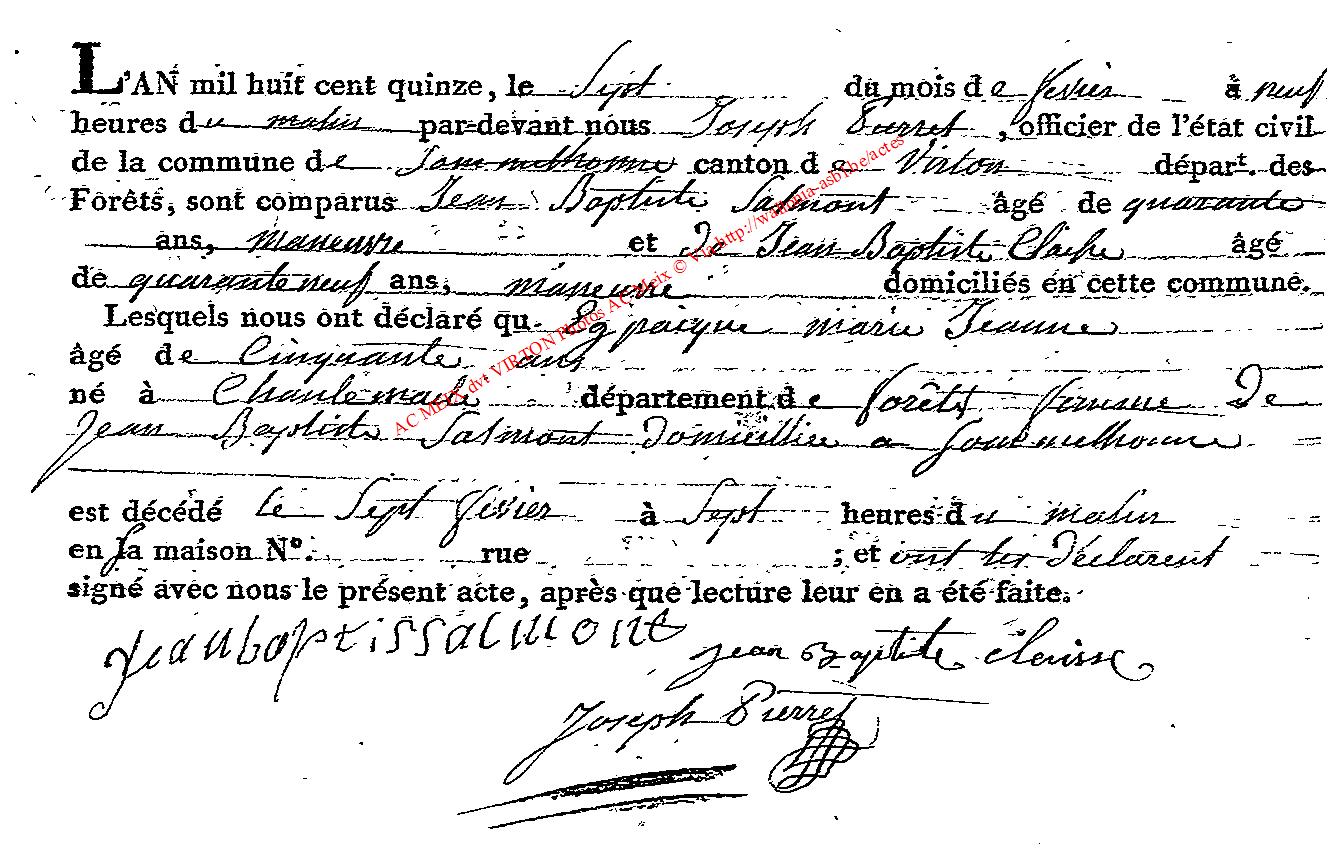 L'AN mil huit cent quinze, le Sept du mois de fevier à neuf
heures du matin par-devant nous Joseph Pierret, officier de l'état civil
de la commune de Sommethonne canton de Virton départ. des
Forêts, sont comparus Jean Baptiste Salmont âgé de quarante
ans, maneuvre et de Jean Baptiste âgé
de quarante neuf ans, maneuvre domiciliés en cette commune.
Lesquels nous ont déclaré qu marie Jeanne
âgé de Cinquante ans
né à département de forêts femme De
Jean Baptiste Salmont Domicillie a Sommethonne
est décédé le Sept fevier à Sept heures du matin
en sa maison N°. rue ; et ont les Déclarent
signé avec nous le présent acte, après que lecture leur en a été faite.
Jean baptis salmont jean Baptite clerisse
Joseph Pierret
AC MEIX dvt VIRTON Photos AC Meix © Via http://wallonia-asbl.be/actes